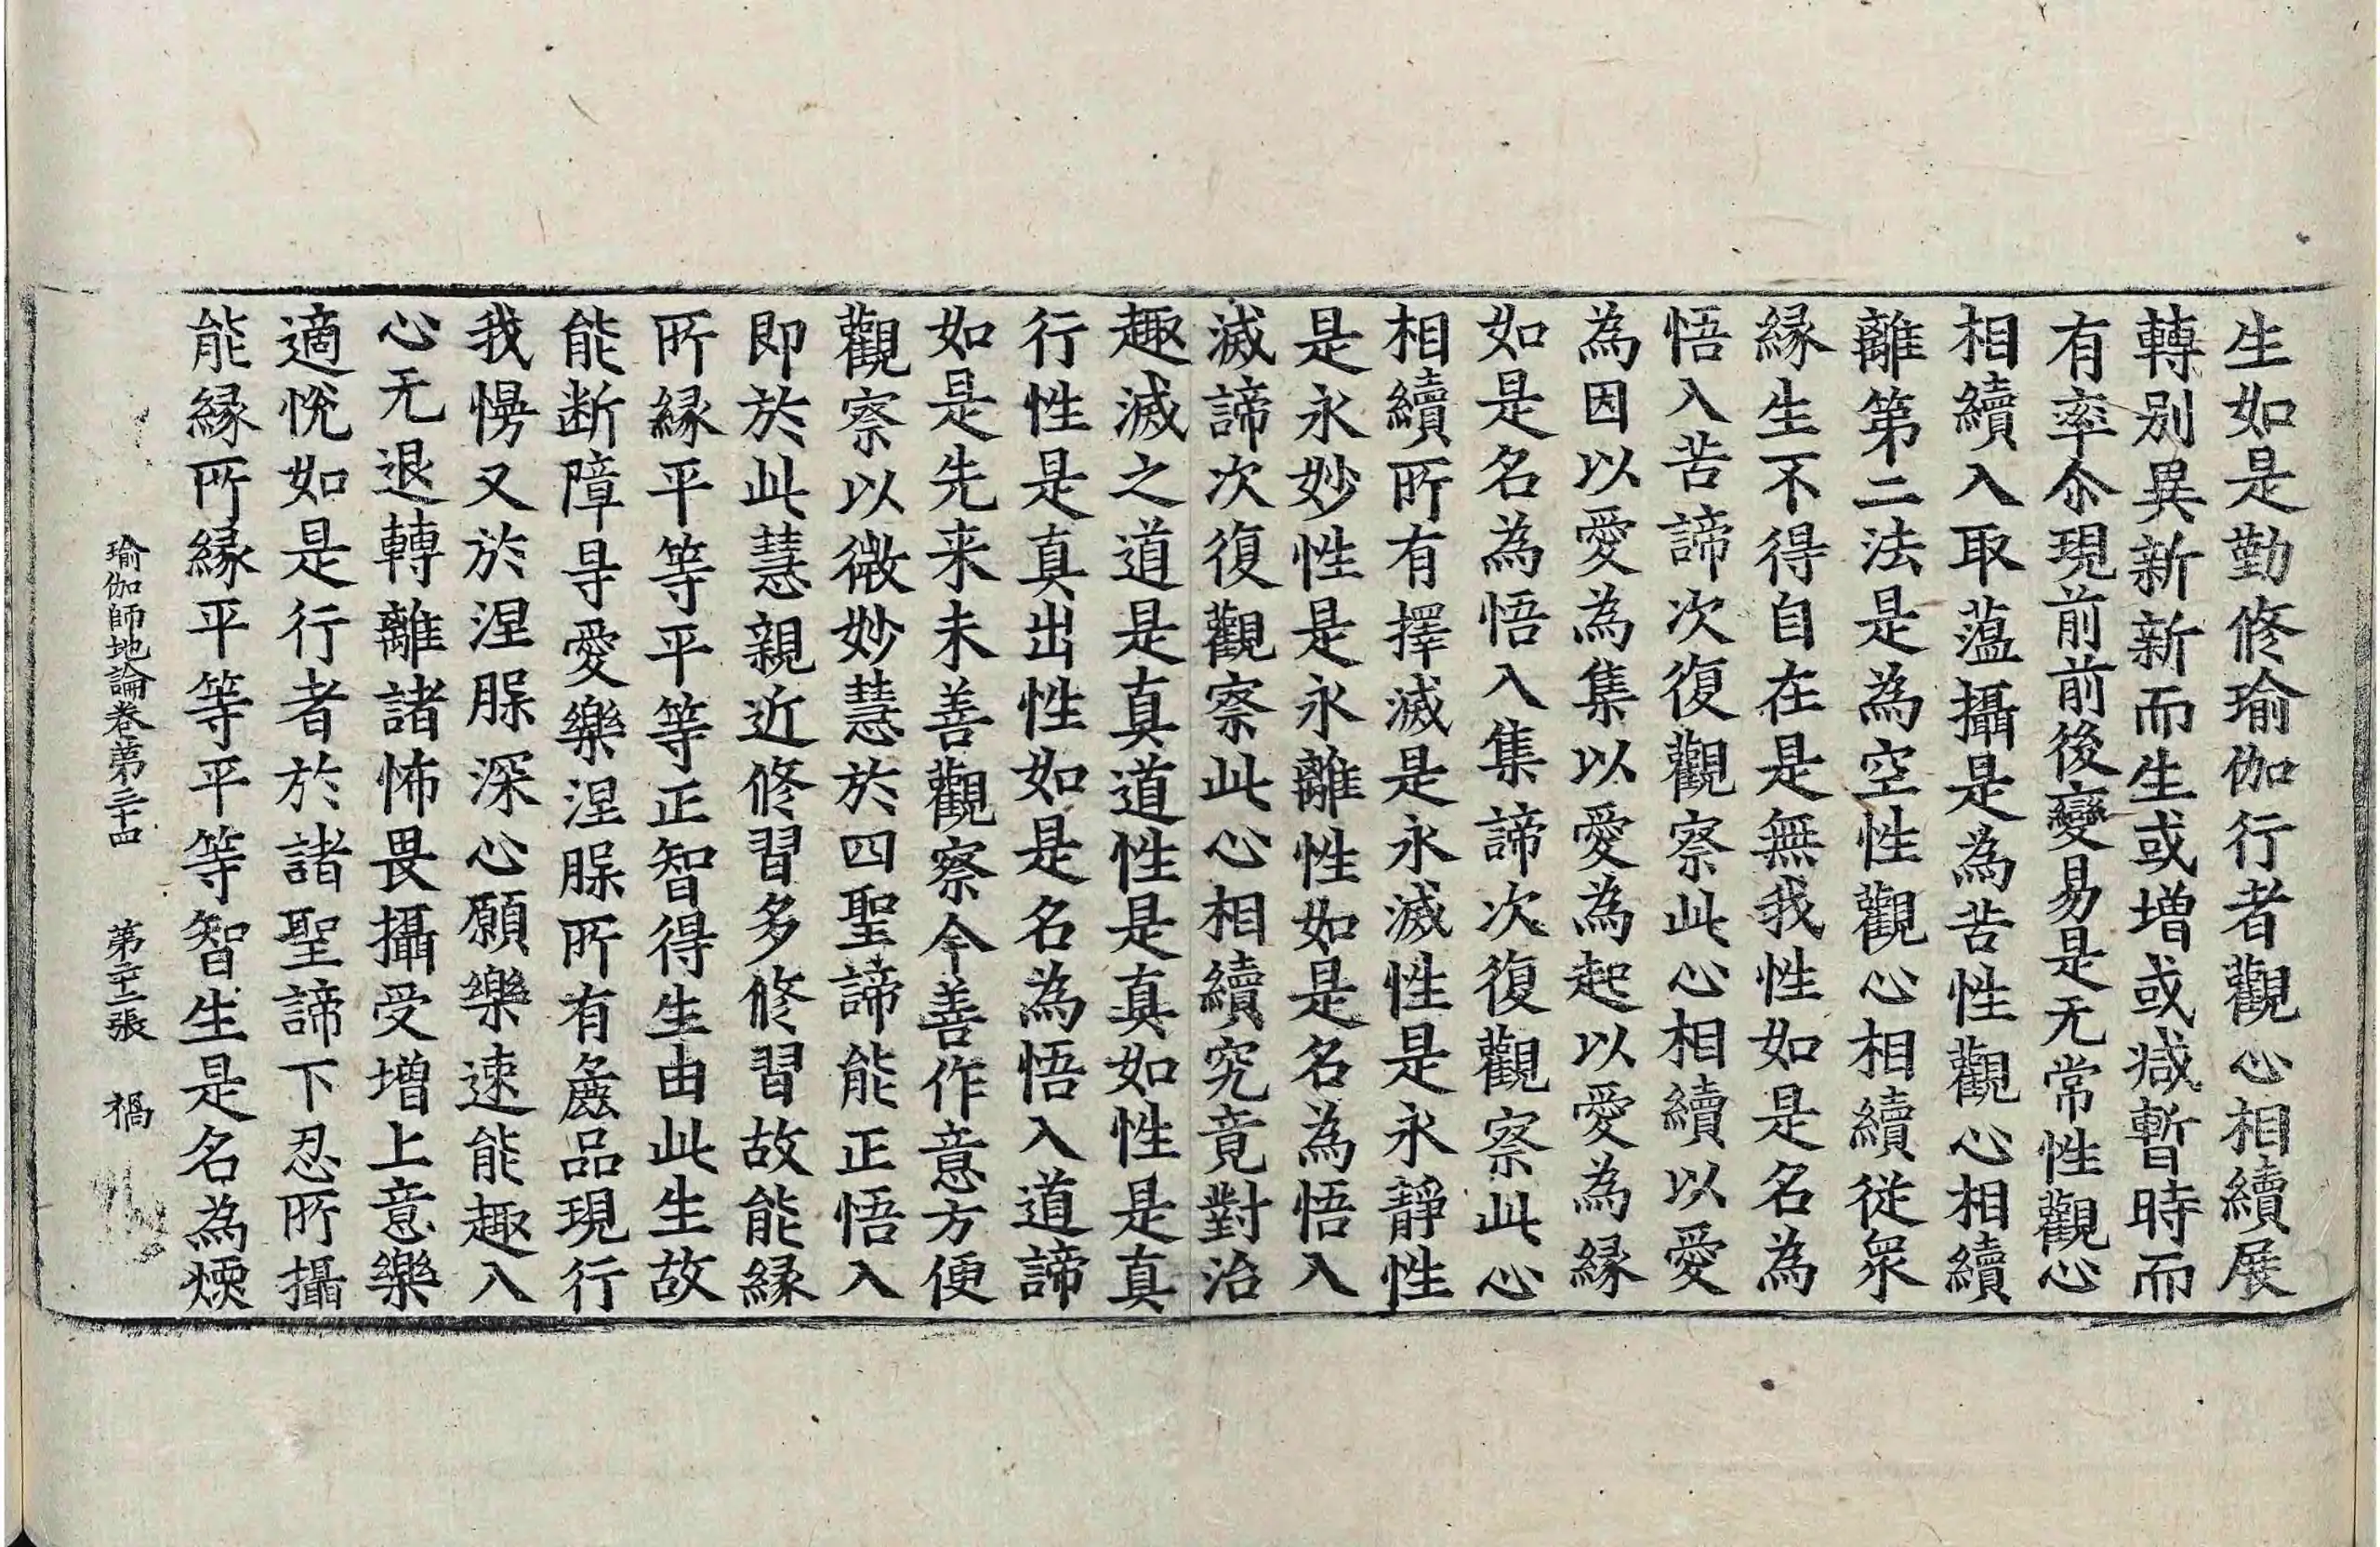 生如是勤修瑜伽行者觀心相續展
轉別異新新而生或增或减暫時而
有率尒現前前後變易是无常性觀心
相續入取蕰攝是為苦性觀心相續
離第二法是為空性觀心相續從衆
緣生不得自在是無我性如是名為
悟入苦諦次復觀察此心相續以愛
為因以愛為集以愛為起以愛為緣
如是名為悟入集諦次復觀察此心
相續所有擇滅是永滅性是永靜性
是永妙性是永離性如是名為悟入
滅諦次復觀察此心相續究竟對治
趣滅之道是真道性是真如性是真
行性是真出性如是名為悟入道諦
如是先来未善觀察今善作意方便
觀察以微妙慧於四聖諦能正悟入
即於此慧親近修習多修習故能緣
所緣平等平等正智得生由此生故
能断障㝵愛樂涅脲所有麁品現行
我慢又於涅脲深心願樂速能趣入
心无退轉離諸怖畏攝受增上意樂
適悅如是行者於諸聖諦下忍所攝
能緣所緣平等平等智生是名為煗
瑜伽師地論卷第三十四 第二十二張 禍